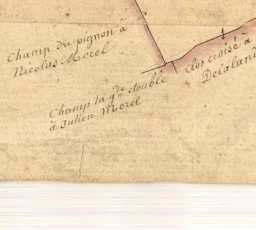 Champ du pignon à
Nicolas Morel
Clos croisé à
Delaland
Champ la g.de double
à Julien Morel